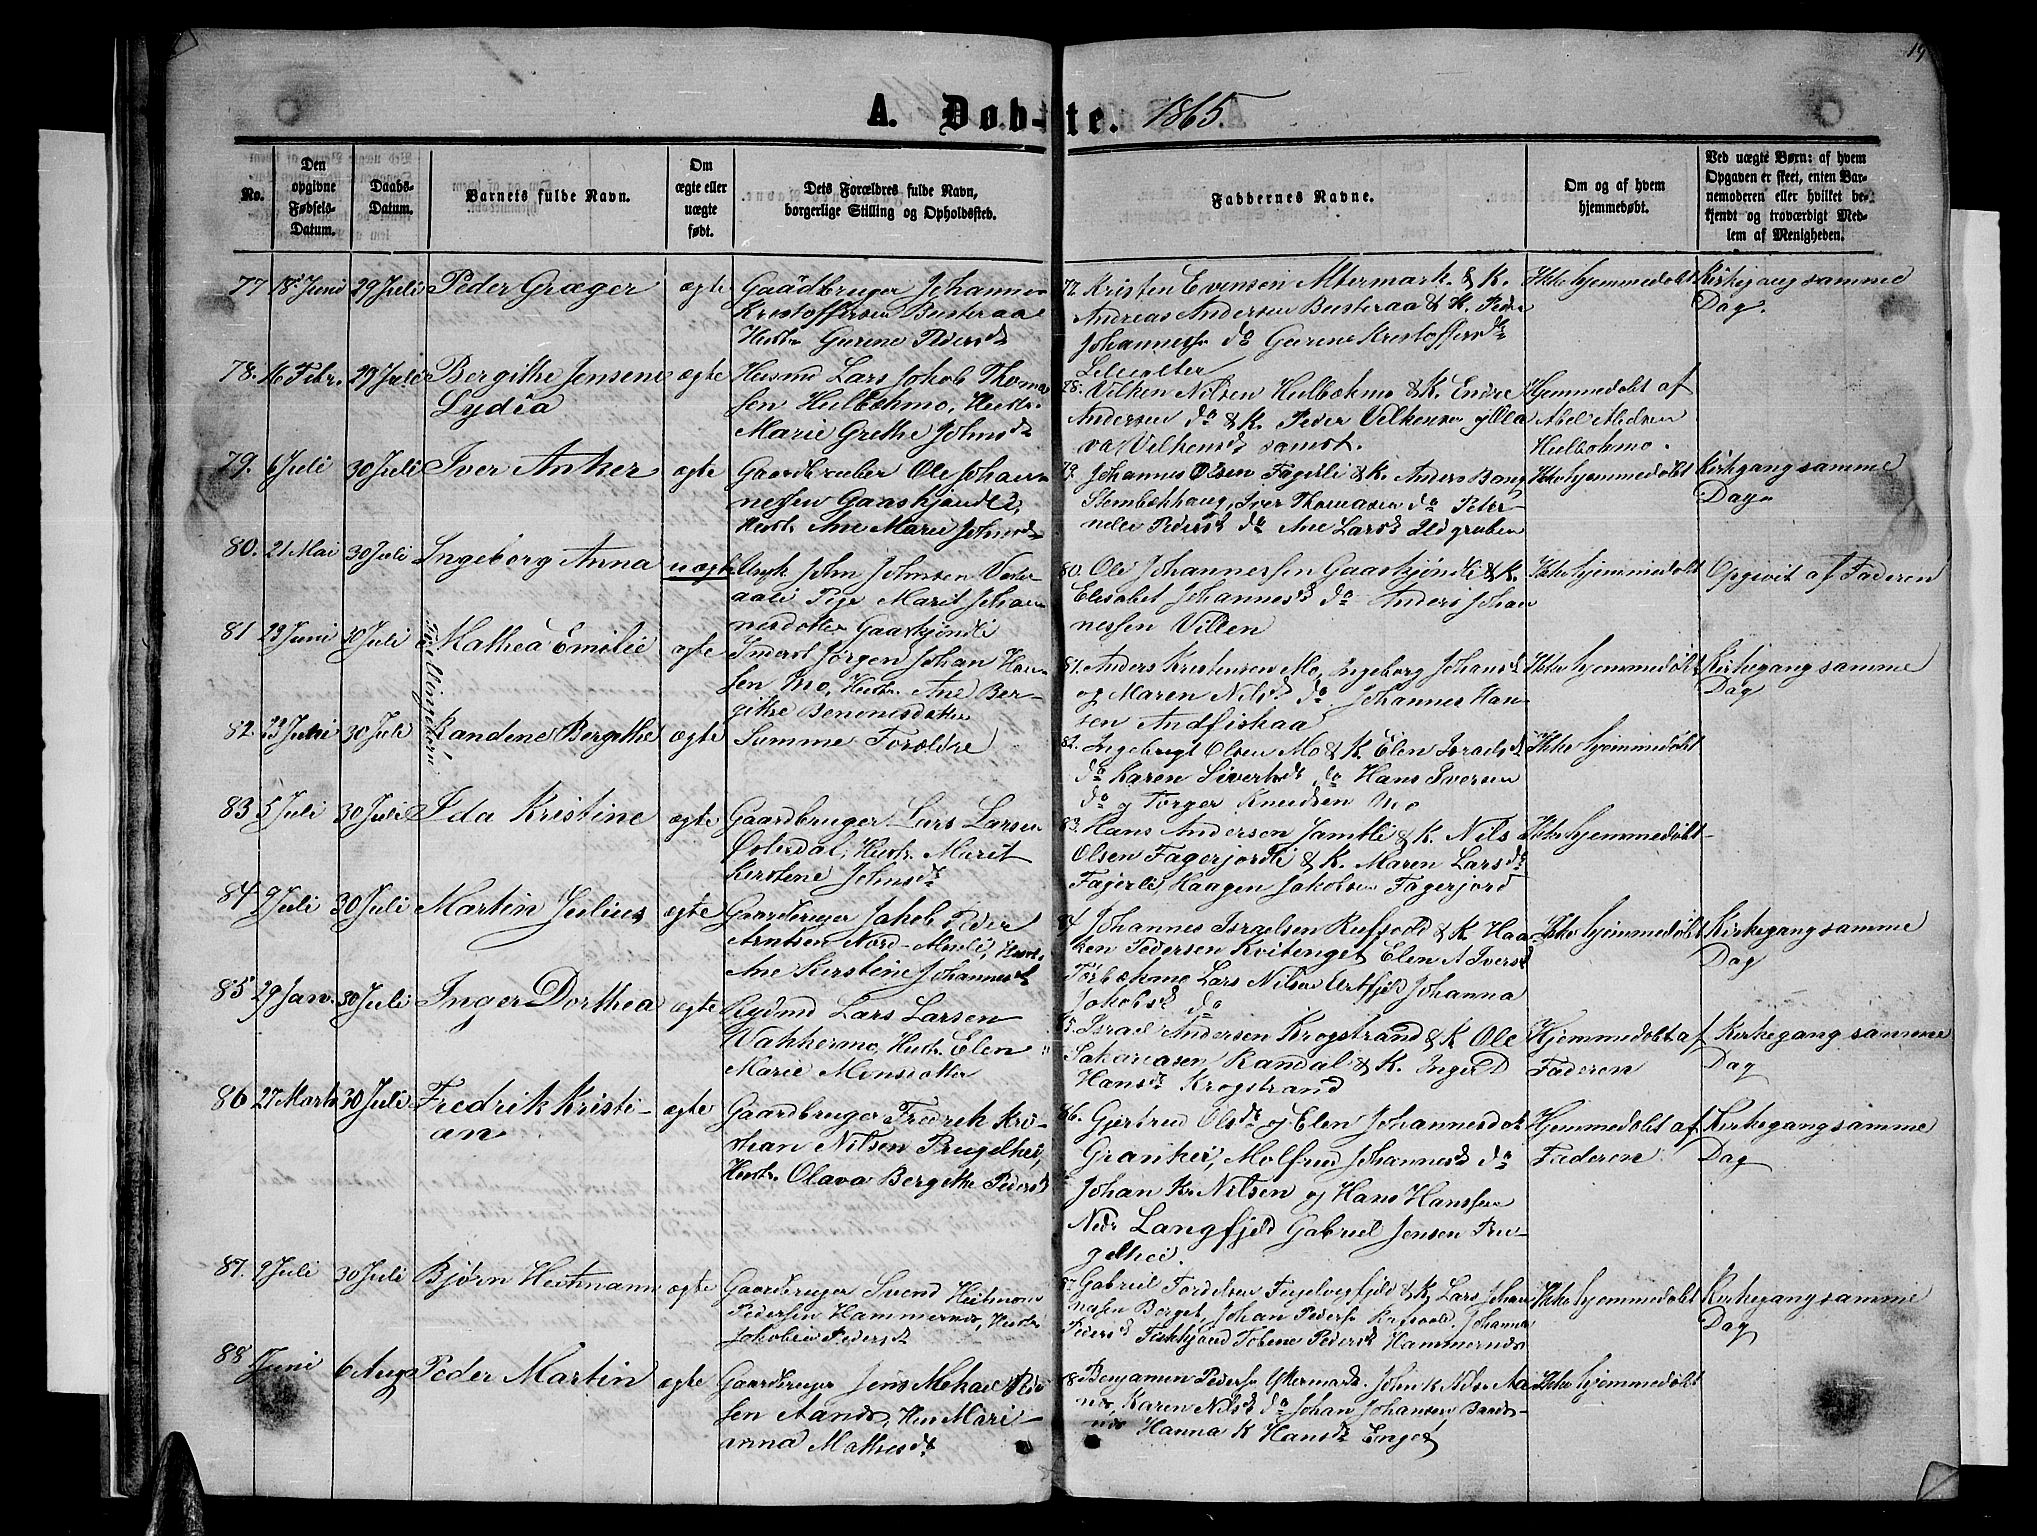 19
A. Døb-te. 1865.
No.
Den opgivne Fødsels-Datum.
Daabs-Datum.
Barnets fulde Navn.
Om ægte eller uægte født.
Dets Forældres fulde Navn, borgerlige Stilling og Opholdssted.
Faddernes Navne.
Om og af hvem hjemmedøbt.
Ved uægte Børn: af hvem Opgaven er skeet, enten Barnemoderen eller hvilket bekjendt og troværdigt Medlem af Menigheden.
77 18 Juni 29 Juli Peder Græger ægte Gaardbruger Johannes
Kristoffersen Busteraa
Hustr. Gurine Pedersd.
77. Kristen Evensen Altermark & K.
Andreas Andersen Busteraa & K. Peder
Johanness. do Gurine Kristoffersd.
Ikke hjemmedøbt Kirkegang samme
Dag.
78. 16 Febr. 29 Juli Bergithe Jensene
Lydia
ægte Husmd Lars Jakob Thoma
sen Hulbækmo, Hustr.
Marie Grethe Johnsd.
78. Vilken Nilsen Hulbækmo & K. Endre
Andersen do & K. Peder Vilkensen og Ola
va Vilkensd. samst.
Hjemmedøbt af
Abel
Hulbækmo.
79. 6 Juli 30 Juli Iver Anker ægte Gaardbruker Ole Johan
nessen Gaaskjønli,
Hustr. Ane Marie Johnsd.
79. Johannes Olsen Fagerli & K. Anders Bang
Stenbækhaug, Iver Thomasen do Peter
nelle Pedersd. do Ane Larsd. Ildgruben
Ikke hjemmedøbt Kirkgang samme
Dag
80. 21 Mai 30 Juli Ingeborg Anna uægte Ungk. John Johnsen Vester
aali Pige Marit Johan
nesdotter Gaaskjønli
80. Ole Johannessen Gaaskjønli & K.
Elisabet Johannesd. do Anders Johan
nessen Villen
Ikke hjemmedøbt Opgivet af Faderen
81 23 Juni 30 Juli Mathea Emilie ægte Inderst Jørgen Johan Han
sen Mo, Hustr. Ane Ber-
githe Benonisdotter
81. Anders Kristensen Mo, Ingeborg Johansd.
og Maren Nilsd. do Johannes Han
sen Andfiskaa
Ikke hjemmedøbt Kirkegang samme
Dag
Tvillingebørn
82. 23 Juni 30 Juli Randine Bergithe ægte Samme Forældre
82. Ingebrigt Olsen Mo & K. Elen Israelsd.
do Karen Sivertsd. do Hans Iversen
do og Torger Knudsen Mo
Ikke hjemmedøbt
83 5 Juli 30 Juli Ida Kristine ægte Gaardbruger Lars Larsen
Østerdal, Hustr. Marit
Kerstine Johnsd.
83. Hans Andersen Jamtli & K. Nils
Olsen Fagerjordli & K. Maren Larsd.
Fagerli Haagen Jakobsen Fagerjord
Ikke hjemmedøbt
84 9 Juli 30 Juli Martin Julius ægte Gaardbruger Jakob Peder
Arntsen Nord-, Hustr.
Ane Kerstine Johannesd.
84 Johannes Israelsen Rufsvold & K. Haa
ken Pedersen Kvitenget Elen A Iversd.
Lars Nilsen Johanna
Jakobsd. do
Ikke hjemmedøbt Kirkegang samme
Dag
85 29 Jan. 30 Juli Inger Dorthea ægte Rydmd Lars Larsen
Hustr. Elen
Marie Monsdotter
Israel Andersen Krogstrand & K Ole
Sakariasen Randal & K. Inger D
Hansd. Krogstrand
Hjemmedøbt af
Faderen
Kirkegang samme
Dag
86 27 Marts 30 Juli Fredrik Kristi-
an
ægte Gaardbruger Fredrik Kri-
stian Nilsen Prugelhei,
Hustr. Olava Bergitte Pedersd.
86. Gjertrud Olsd. og Elen Johannesdot
Granhei, Molfrid Johannesd. do
Johan Kr. Nilsen og Hans Hanssen
Nedr Langfjeld Gabriel Jensen Pru-
gelhei.
Hjemmedøbt af
Faderen
Kirkegang samme
Dag
87. 9 Juli 30 Juli Bjørn Heitmann ægte Gaardbruger Svend Heitman
Pedersen Hammernes, Hustr.
Jakobine Pedersd.
Gabriel & K. Lars Johan
nesen Borget, Johan Peders. Johanna
Pedersd. Tobine Pedersd. Hammernes
Ikke hjemmedøbt Kirkegang samme
Dag
88 Juni 6 Aug Peder Martin ægte Gaardbruger Jens Mekael Peder
sen Aanæs, Hus Mari-
anna Mathisd.
Benjamin Peders. Yttermark. John K. Nils. Aa
næs, Karen Nilsd. do Johan Johansen
Hanna K Hansd. Enget
Ikke hjemmedøbt